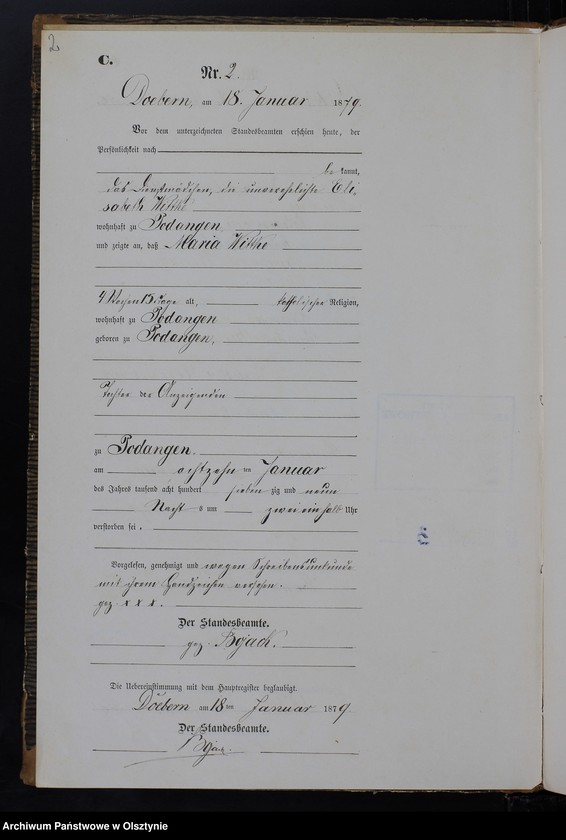 2
C.
Nr. 2.
Doebern, am 18. Januar 1879.
Vor dem unterzeichneten Standesbeamten erschien heute, der
Persönlichkeit nach
be kannt,
das Dienstmädchen, die unverehelichte Eli-
sabeth Wittki
wohnhaft zu Podangen,
und zeigte an, daß Maria Wittki
4 Wochen 15 Tage alt, katholischer Religion,
wohnhaft zu Podangen
geboren zu Podangen,
Tochter der Anzeigenden
zu Podangen.
am achtzehn ten Januar
des Jahres tausend acht hundert sieben zig und neun
Nachts um zwei ein halb Uhr
verstorben sei.
Vorgelesen, genehmigt und wegen Schreibensunkunde
mit ihrem Handzeichen versehen.
gez x x x.
Der Standesbeamte.
gez. Bojack.
Die Uebereinstimmung mit dem Hauptregister beglaubigt.
Döbern am 18 ten Januar 1879
Der Standesbeamte.
Bojack.
Archiwum Państwowe w Olsztynie